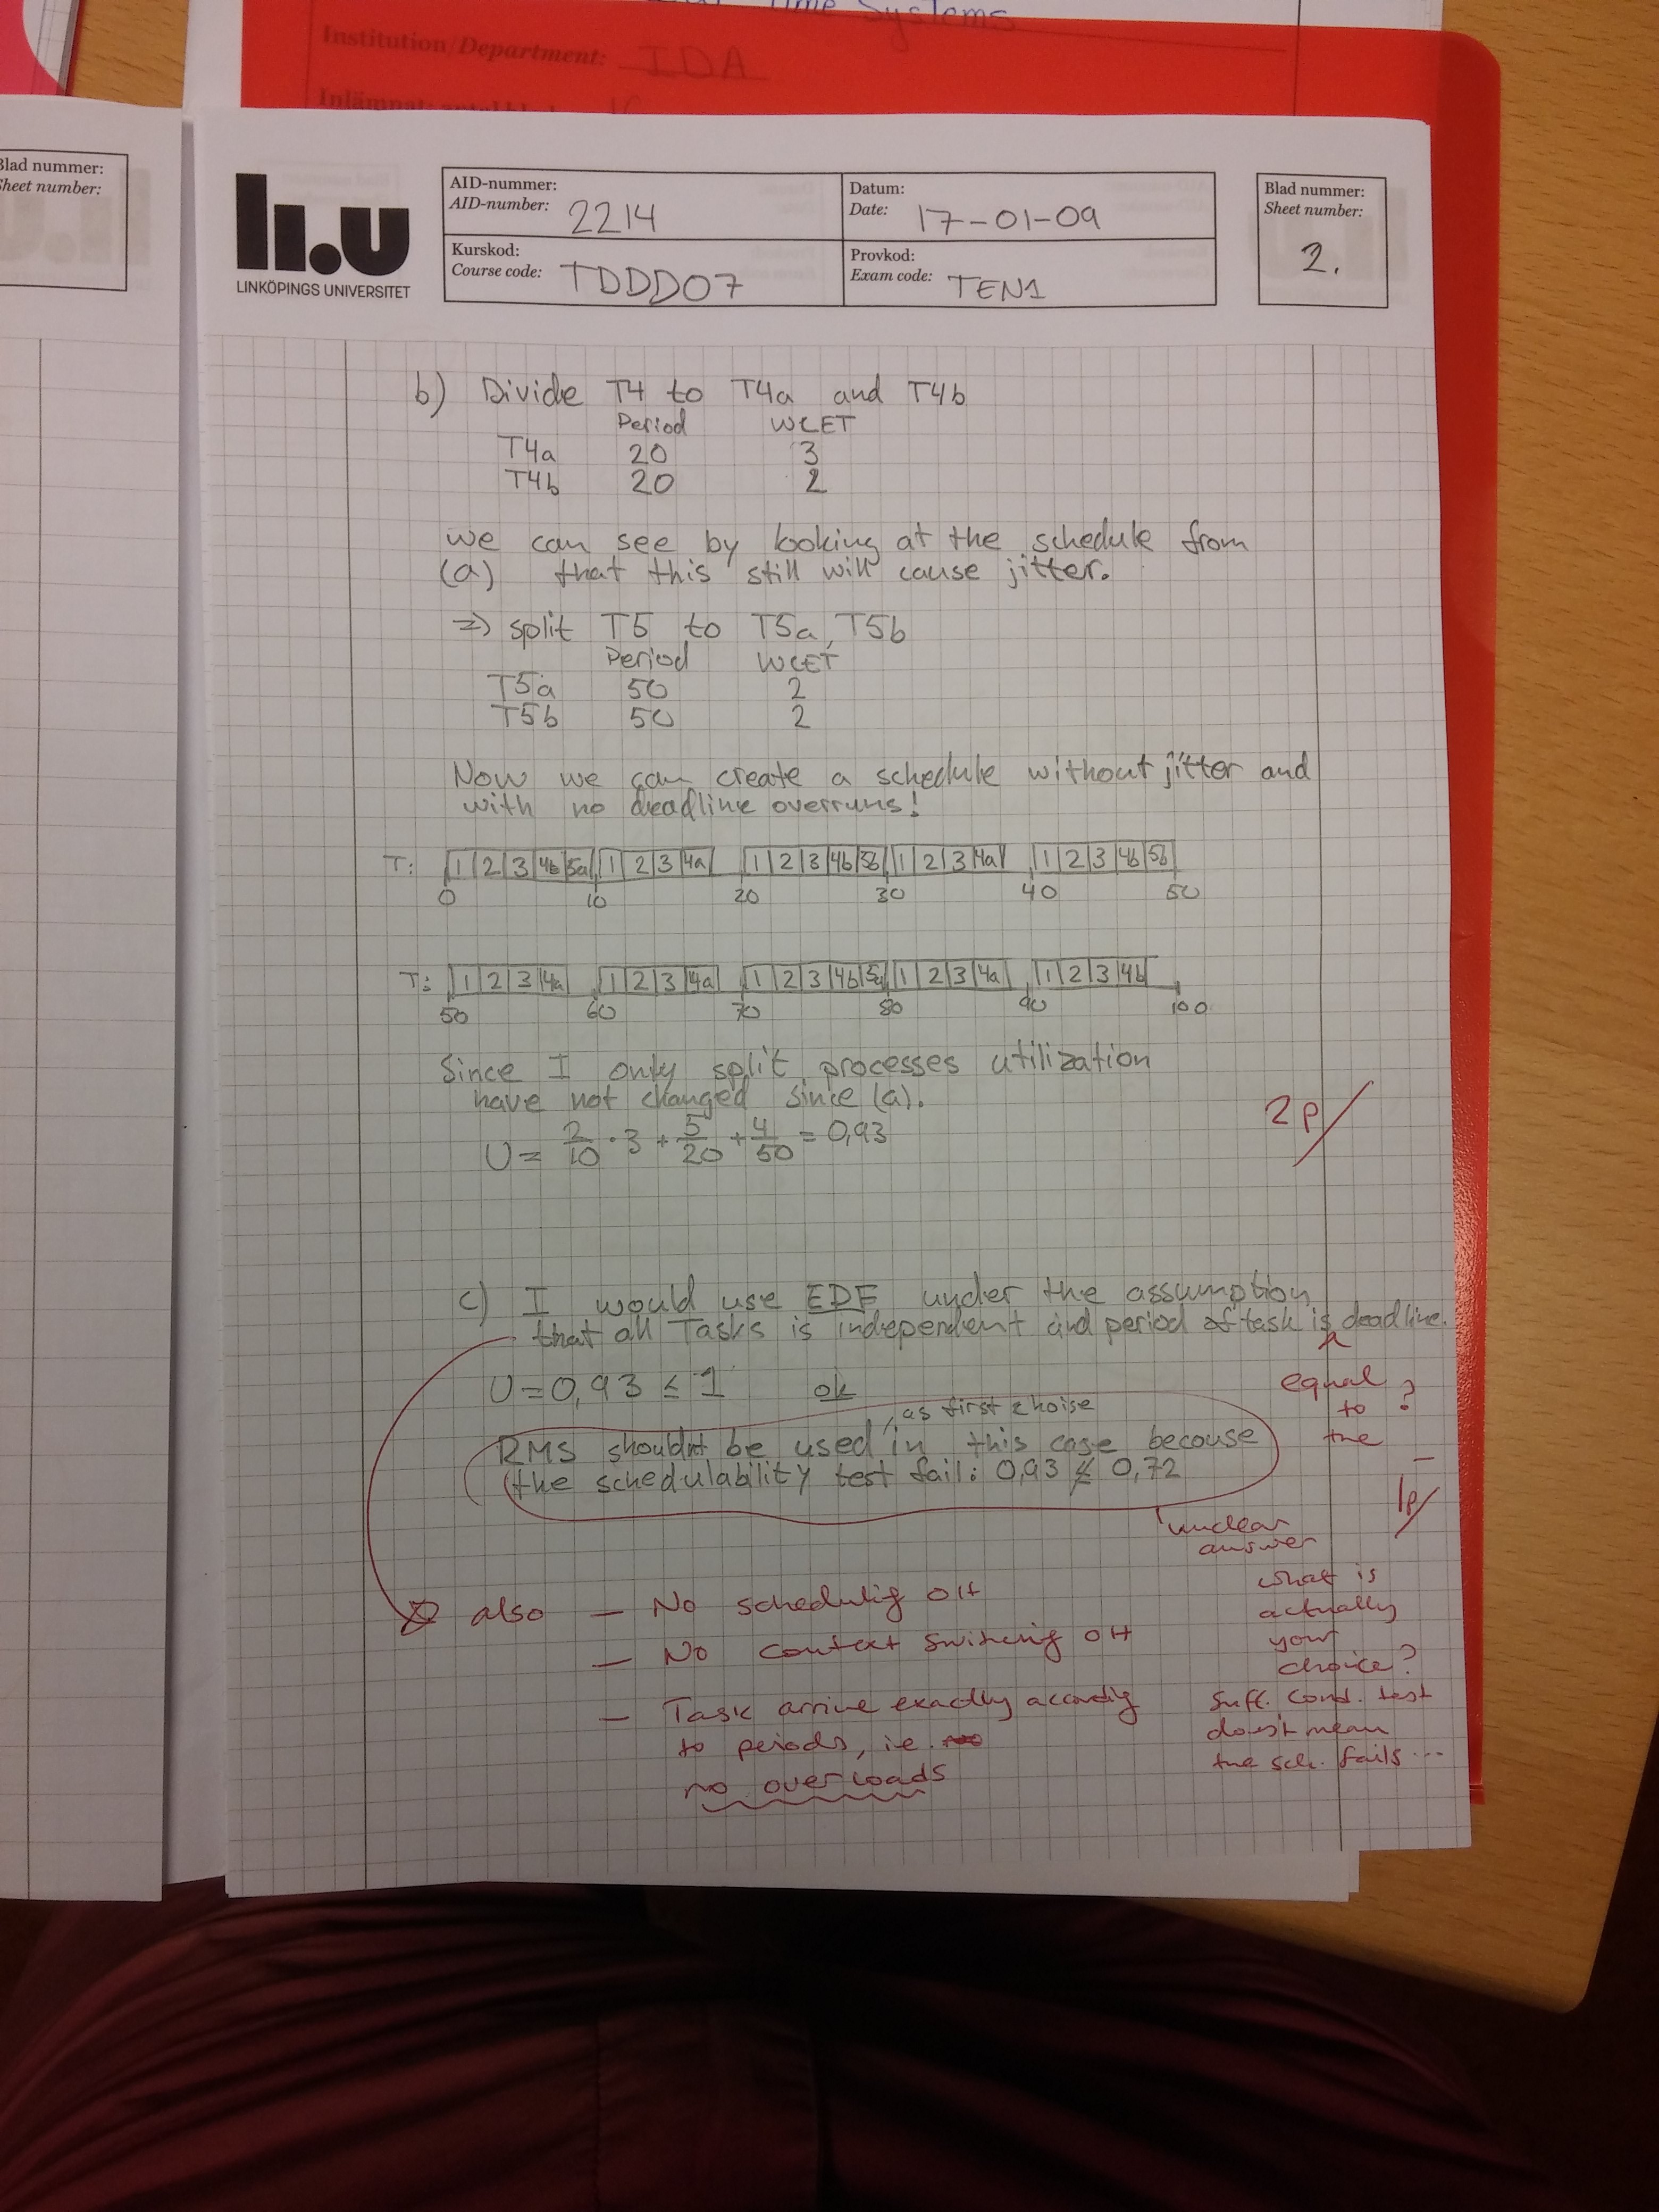 Time Systems
Institution/Department: IDA
Blad nummer:
Sheet number:
li.u
LINKÖPINGS UNIVERSITET
AID-nummer:
AID-number: 2214
Datum:
Date: 17-01-09
Kurskod:
Course code: TDDD07
Provkod:
Exam code: TEN1
Blad nummer:
Sheet number:
2.
b) Divide T4 to T4a and T4b
Period WCET
T4a 20 3
T4b 20 2
we can see by looking at the schedule from
(a) that this still will cause jitter.
=> split T5 to T5a, T5b
Period WCET
T5a 50 2
T5b 50 2
Now we can create a schedule without jitter and
with no deadline overruns!
T: 1 2 3 4b 5a 1 2 3 4a 1 2 3 4b 5b 1 2 3 4a 1 2 3 4b 5b
0 10 20 30 40 50
T: 1 2 3 4a 1 2 3 4a 1 2 3 4b 5a 1 2 3 4a 1 2 3 4b
50 60 70 80 90 100
Since I only split processes utilization
have not changed since (a).
U = 2/10 · 3 + 5/20 + 4/50 = 0,93
2p/
c) I would use EDF under the assumption
that all Tasks is independent and period of task is deadline.
equal
to ?
the
U = 0,93 ≤ 1 ok
, as first choise
RMS shouldnt be used in this case becouse
the schedulability test fail: 0,93 ≰ 0,72
1p/
unclear
answer
what is
actually
your
choice?
Suff. cond. test
does't mean
the sch. fails ...
also – No scheduling OH
– No context switching OH
– Task arrive exactly accordig
to periods, i.e.
no overloads